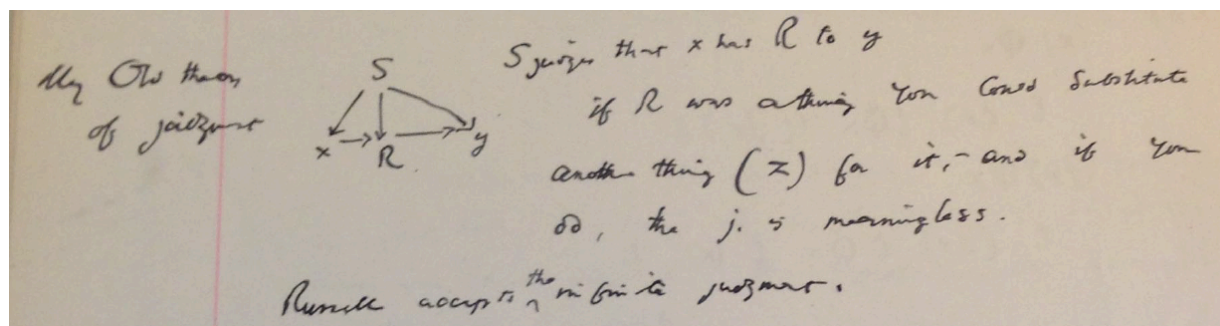 My Old theory
of judgment
S
x R y
S judges that x has R to y
if R was a thing you could substitute
another thing (z) for it, - and if you
do, the j. is meaningless.
Russell accepts the infinite judgment.